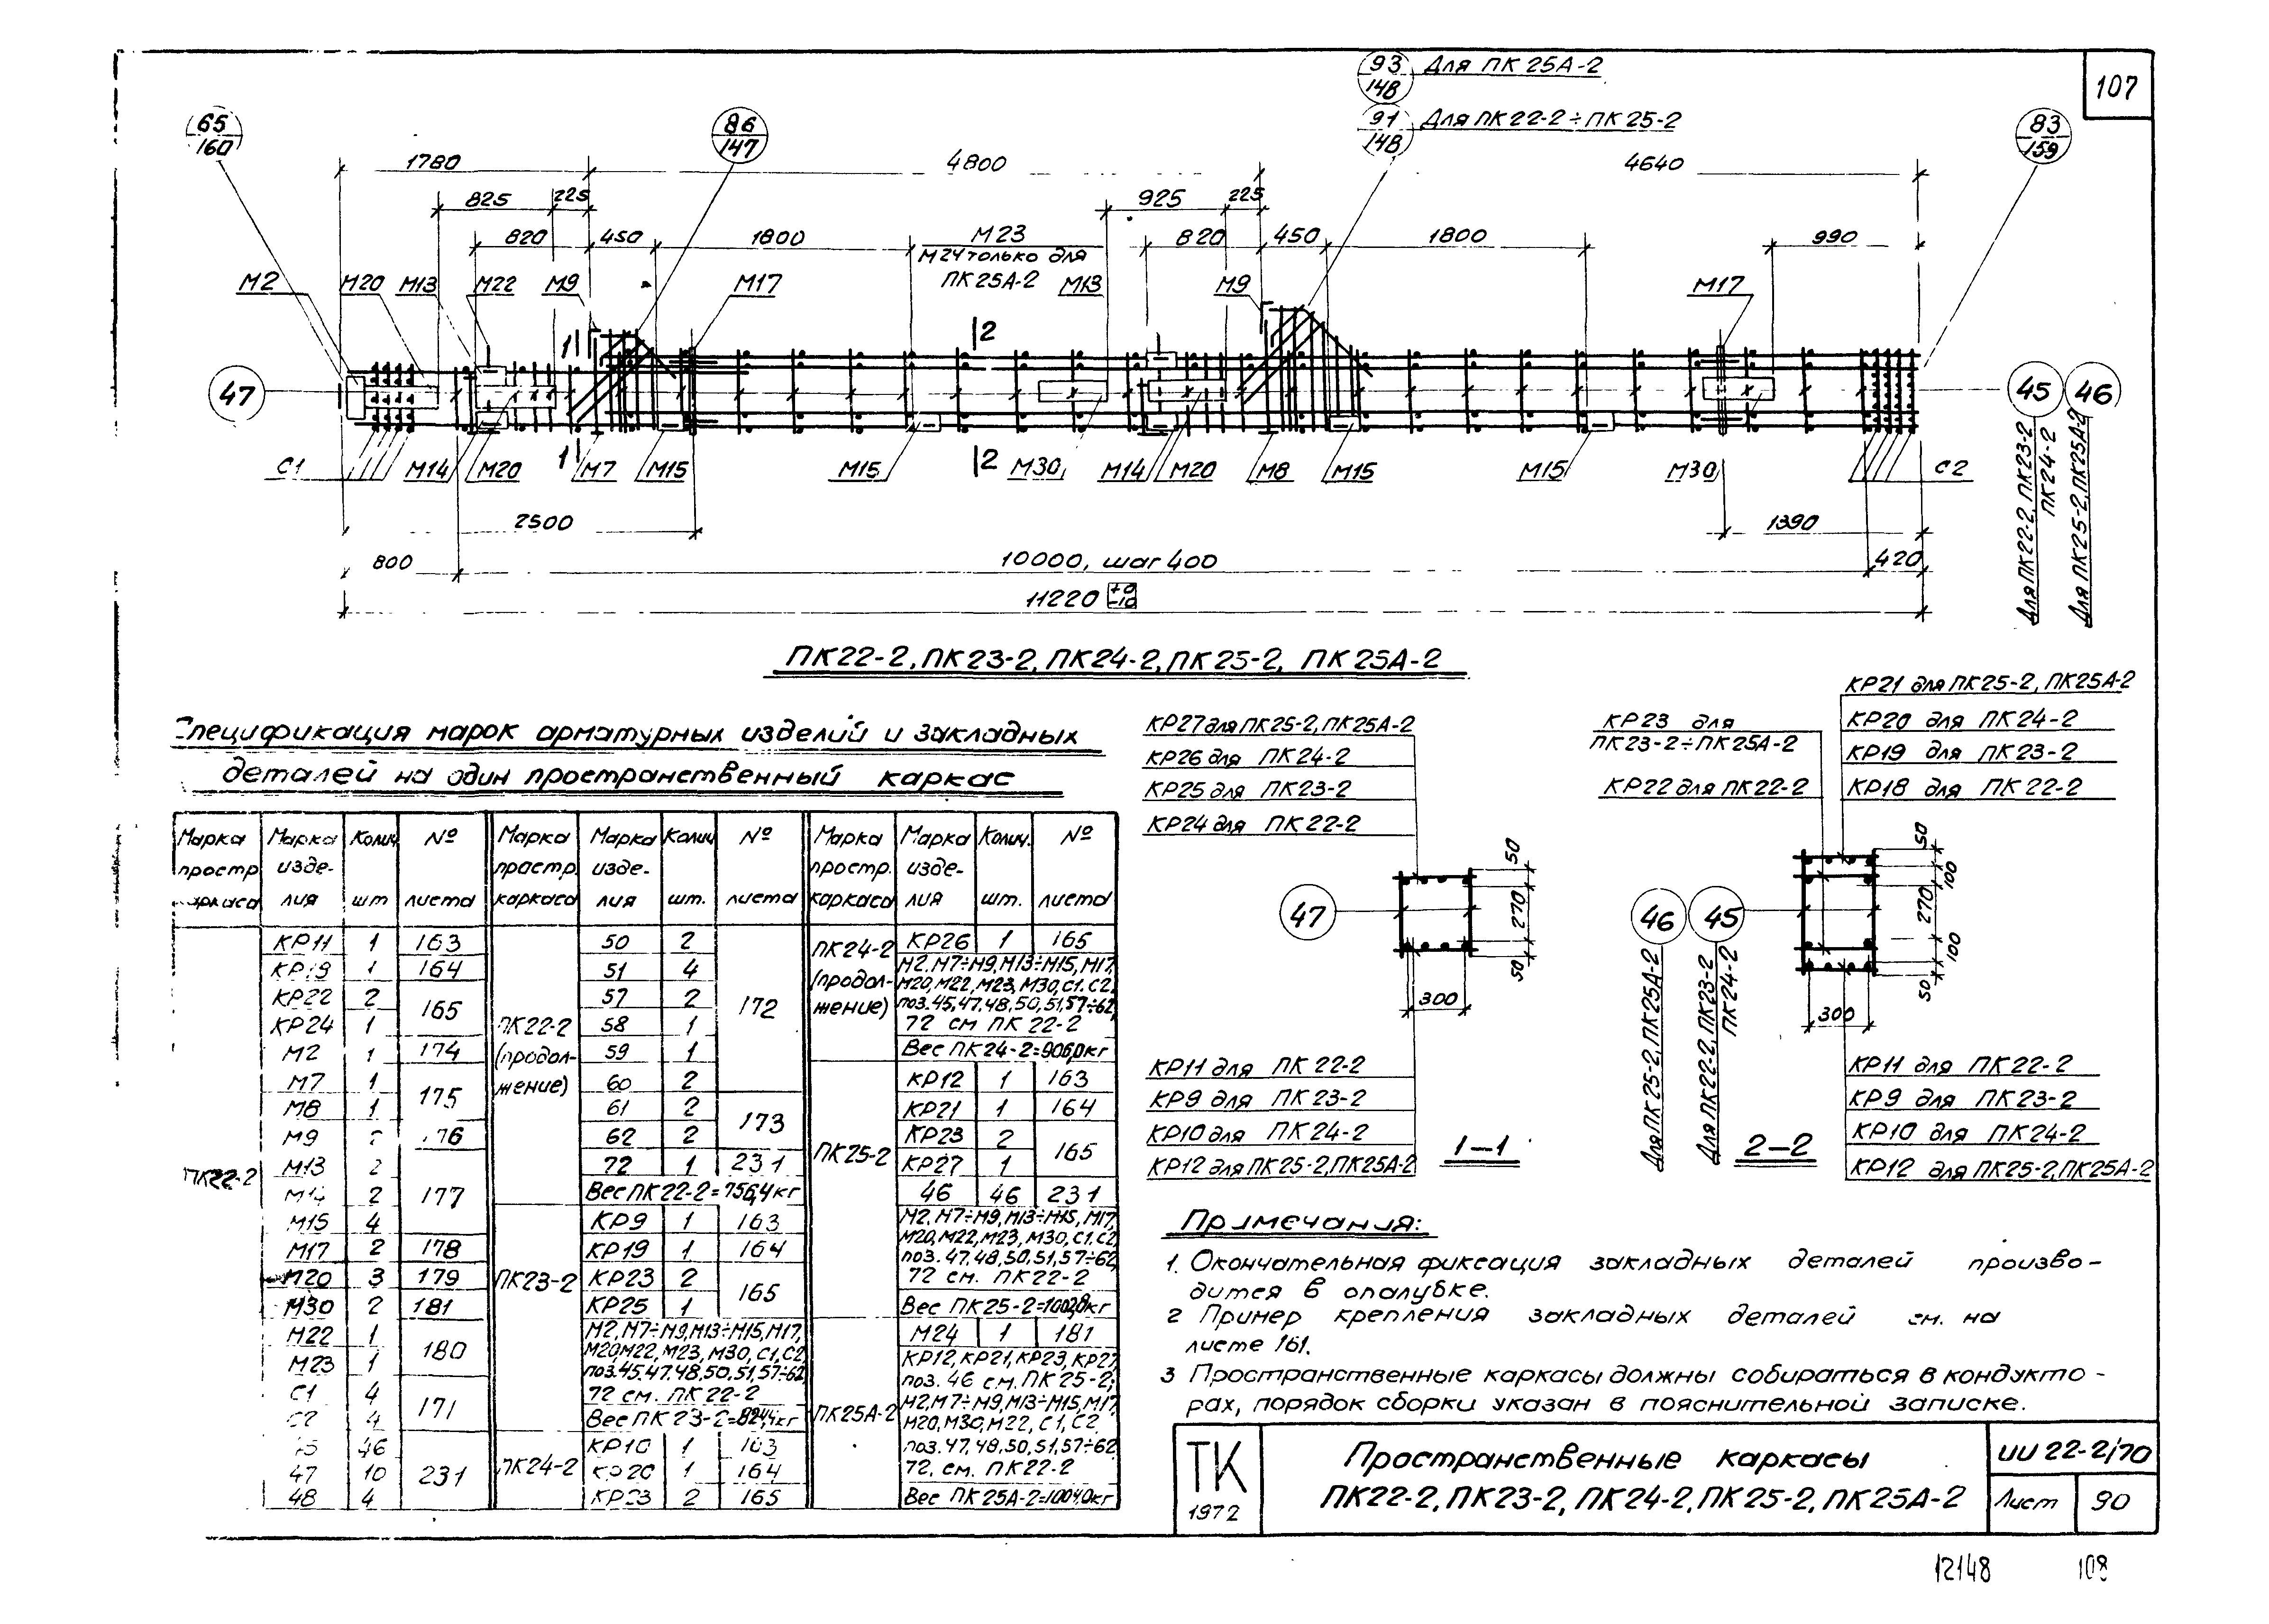 107
93
148
Для ПК 25А-2
91
148
Для ПК 22-2÷ПК 25-2
65
160
86
147
83
159
1780
4800
4640
825
225
925
225
820
450
1800
820
450
1800
990
М23
М24 только для
ПК 25А-2
М2
М20
М13
М22
М9
М17
М13
М9
М17
1
2
47
45
46
1
2
С1
М14
М20
М7
М15
М15
М30
М14
М20
М8
М15
М15
М30
С2
Для ПК22-2, ПК23-2
ПК24-2
Для ПК25-2, ПК25А-2
2500
1390
800
10000, шаг 400
420
11220 +0 -10
ПК22-2, ПК23-2, ПК24-2, ПК25-2, ПК25А-2
Спецификация марок арматурных изделий и закладных
деталей на один пространственный каркас
Марка простр. каркаса | Марка изделия | Колич. шт | № листа
ПК22-2
КР11 1 163
КР19 1 164
КР22 2 165
КР24 1
М2 1 174
М7 1 175
М8 1
М9 2 176
М13 2 177
М14 2
М15 4
М17 2 178
М20 3 179
М30 2 181
М22 1 180
М23 1
С1 4 171
С2 4
45 46 231
47 10
48 4
Марка простр. каркаса | Марка изде-лия | Колич шт. | № листа
ПК22-2 (продол-жение)
50 2 172
51 4
57 2
58 1
59 1
60 2
61 2 173
62 2
72 1 231
Вес ПК 22-2=756,4 кг
ПК23-2
КР9 1 163
КР19 1 164
КР23 2 165
КР25 1
М2, М7÷М9, М13÷М15, М17,
М20, М22, М23, М30, С1, С2
поз. 45, 47, 48, 50, 51, 57÷62,
72 см. ПК 22-2
Вес ПК 23-2=824,4кг
ПК24-2
КР10 1 163
КР20 1 164
КР23 2 165
Марка простр. каркаса | Марка изде-лия | Колич. шт. | № листа
ПК24-2 (продол-жение)
КР26 1 165
М2, М7÷М9, М13÷М15, М17,
М20, М22, М23, М30, С1, С2
поз. 45, 47, 48, 50, 51, 57÷62,
72 см ПК 22-2
Вес ПК24-2=906,0кг
ПК25-2
КР12 1 163
КР21 1 164
КР23 2 165
КР27 1
46 46 231
М2, М7÷М9, М13÷М15, М17,
М20, М22, М23, М30, С1, С2
поз. 47, 48, 50, 51, 57÷62,
72 см. ПК22-2
Вес ПК 25-2=1002,8кг
ПК25А-2
М24 1 181
КР12, КР21, КР23, КР27,
поз. 46 см. ПК 25-2;
М2, М7÷М9, М13÷М15, М17,
М20, М30, М22, С1, С2
поз. 47, 48, 50, 51, 57÷62
72, см. ПК22-2
Вес ПК 25А-2=1004,0кг
КР27 для ПК25-2, ПК25А-2
КР26 для ПК 24-2
КР25 для ПК23-2
КР24 для ПК 22-2
47
50
270
50
300
КР11 для ПК 22-2
КР9 для ПК 23-2
КР10 для ПК 24-2
КР12 для ПК 25-2, ПК25А-2
1–1
КР23 для
ПК23-2÷ПК25А-2
КР22 для ПК 22-2
КР21 для ПК25-2, ПК25А-2
КР20 для ПК 24-2
КР19 для ПК 23-2
КР18 для ПК 22-2
46
45
Для ПК 25-2, ПК25А-2
Для ПК22-2, ПК23-2
ПК 24-2
50
100
270
100
50
300
КР11 для ПК 22-2
КР9 для ПК 23-2
КР10 для ПК 24-2
КР12 для ПК25-2, ПК25А-2
2–2
Примечания:
1. Окончательная фиксация закладных деталей произво-
дится в опалубке.
2 Пример крепления закладных деталей см. на
листе 161.
3 Пространственные каркасы должны собираться в кондукто-
рах, порядок сборки указан в пояснительной записке.
ТК
1972
Пространственные каркасы
ПК22-2, ПК23-2, ПК24-2, ПК25-2, ПК25А-2
ИИ 22-2/70
Лист
90
12148
108